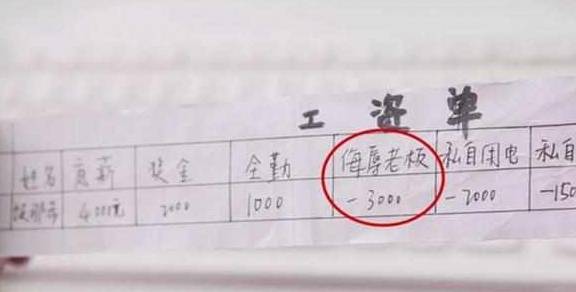 工资单
姓名 底薪 奖金 全勤 侮辱老板 私自用电 私自
4000元 2000 1000 -3000 -2000 -150